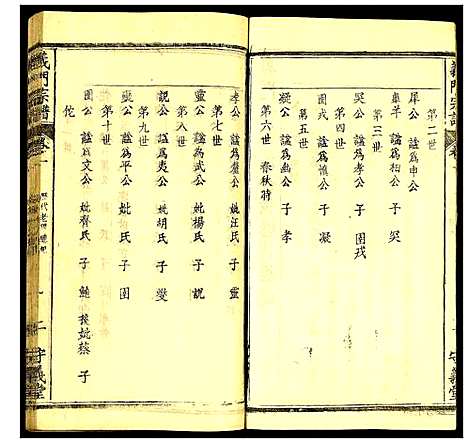 義門宗譜
第二世
犀公 諡為申公
皐羊 諡為相公 子 突
第三世
突公 諡為孝公 子 圉戎
第四世
圉戎 諡為慎公 子 凝
第五世
凝公 諡為幽公 子 孝
第六世 春秋時
孝公 諡為釐公 妣汪氏 子 靈
第七世
靈公 諡為武公 妣楊氏 子 說
第八世
說公 諡為夷公 妣胡氏 子 燮
第九世
燮公 諡為平公 妣氏 子 圉
第十世
圉公 諡為文公 妣齊氏 子 鮑 後妣蔡 子
佗
義門宗譜
卷
二
守義堂
守義堂